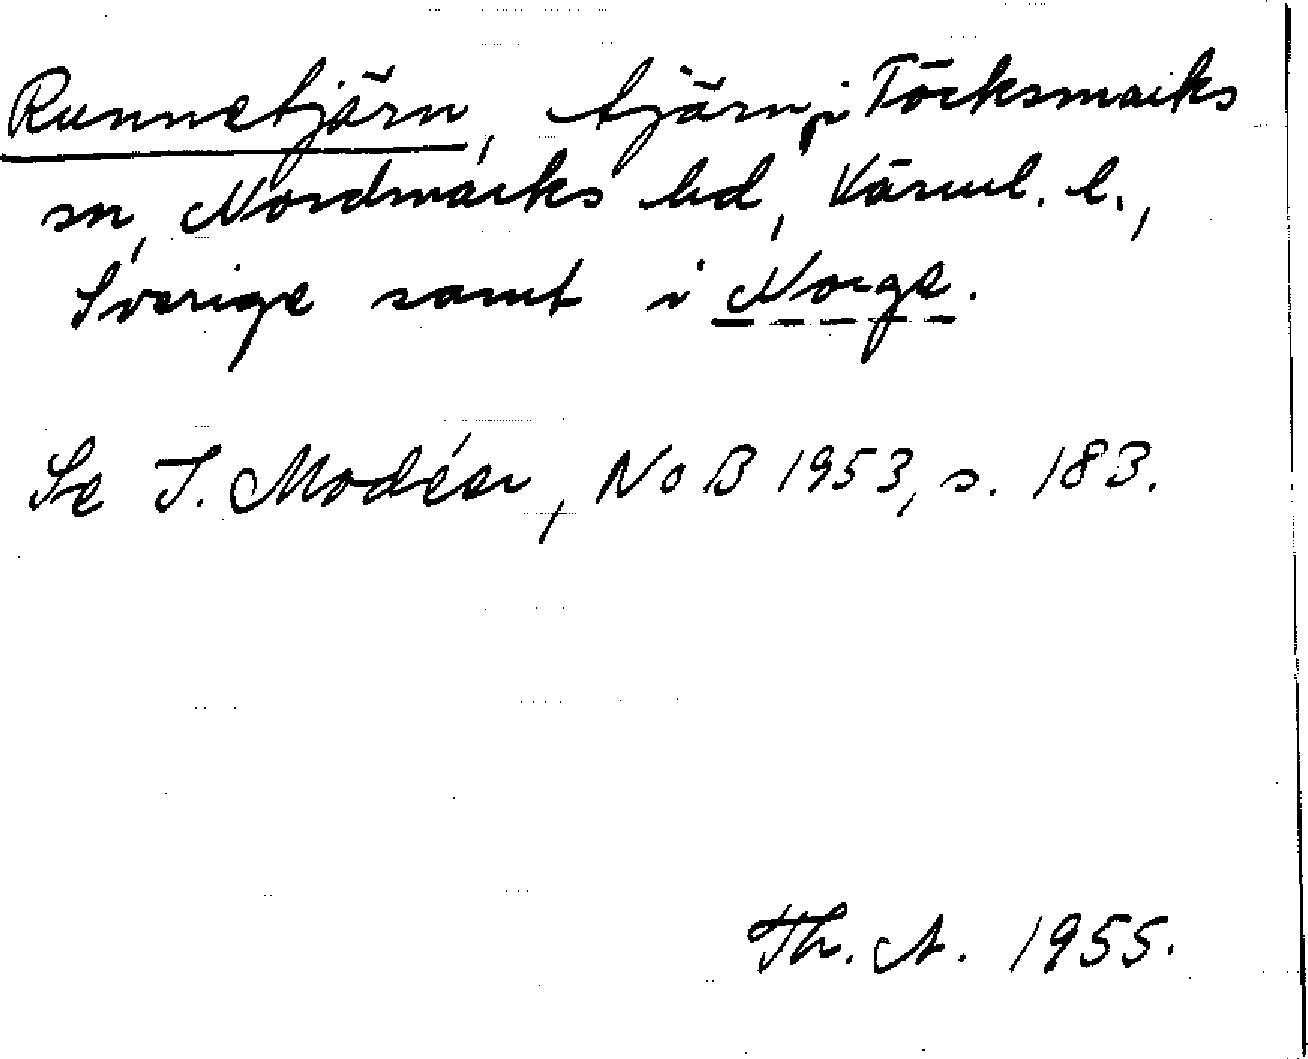 Runnetjärn, tjärn, i Töcksmarks
sn, Nordmarks hd, Värml. l.,
Sverige samt i Norge.
Se I. Modéer, NoB 1953, s. 183.
Th. A. 1955.